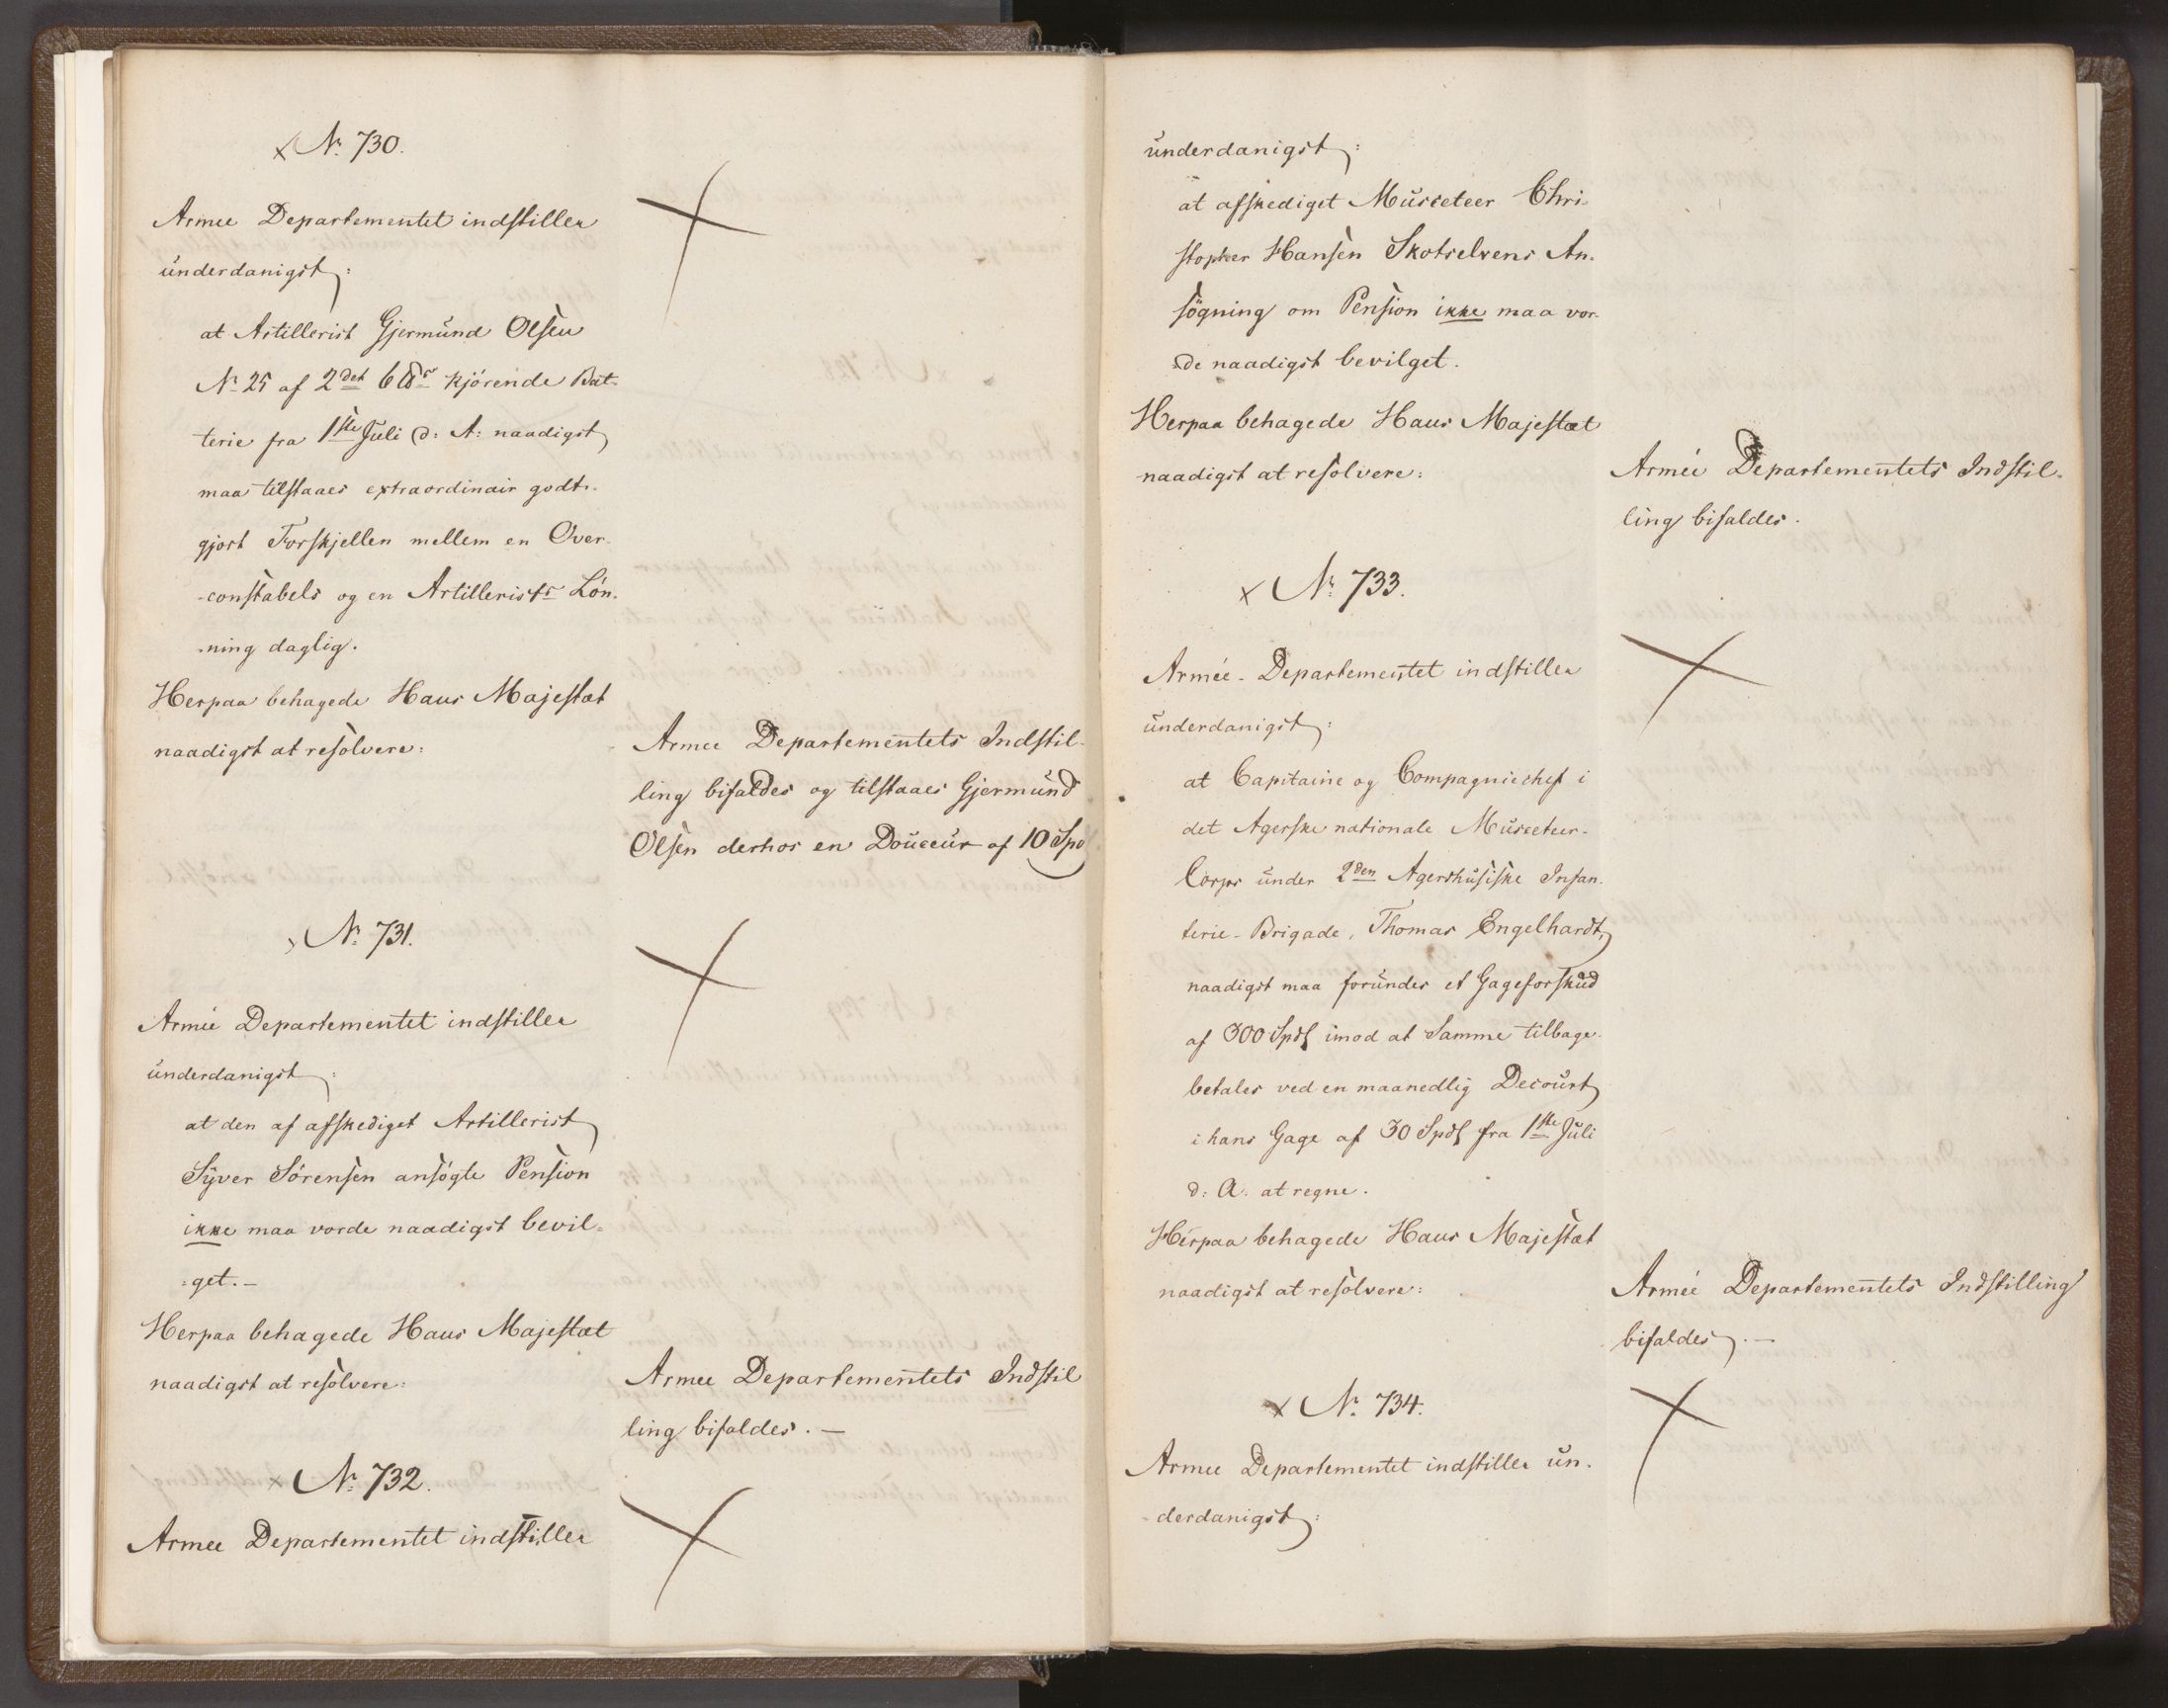 No 730.
Armee Departementet indstiller
underdanigst:
at Artillerist Gjermund Olsen
No 25 af 2det 6 ℔r kjørende Bat-
terie fra 1ste Juli d: A: naadigst
maa tilstaaes extraordinair godt-
gjort Forskjellen mellem en Over-
-constabels og en Artillerists Løn-
-ning daglig.
Herpaa behagede Hans Majestæt
naadigst at resolvere:
Armee Departementets Indstil-
ling bifaldes og tilstaaes Gjermund
Olsen derhos en Douceur af 10 Spd
No 731.
Armée Departementet indstiller
underdanigst:
at den af afskediget Artillerist
Syver Sörensen ansögte Pension
ikke maa vorde naadigst bevil-
-get. -
Herpaa behagede Hans Majestæt
naadigst at resolvere:
Armee Departementets Indstil
ling bifaldes. -
No 732.
Armee Departementet indstiller
underdanigst:
at afskediget Musceteer Chri-
stopher Hansen Skotselvens An-
sögning om Pension ikke maa vor-
-de naadigst bevilget.
Herpaa behagede Hans Majestæt
naadigst at resolvere:
Armée Departementets Indstil-
ling bifaldes.
No 733.
Armée-Departementet indstiller
underdanigst:
at Capitaine og Compagniechef i
det Agerske nationale Musceteer-
Corps under 2den Agershusiske Infan-
terie-Brigade, Thomas Engelhardt,
naadigst maa forundes et Gageforskud
af 300 Spdl imod at Samme tilbage-
betales ved en maanedlig Decourt
i hans Gage af 30 Spdl fra 1ste Juli
d: A: at regne.
Herpaa behagede Hans Majestæt
naadigst at resolvere:
Armée Departementets Indstilling
bifaldes. -
No 734.
Armee Departementet indstiller un-
-derdanigst: